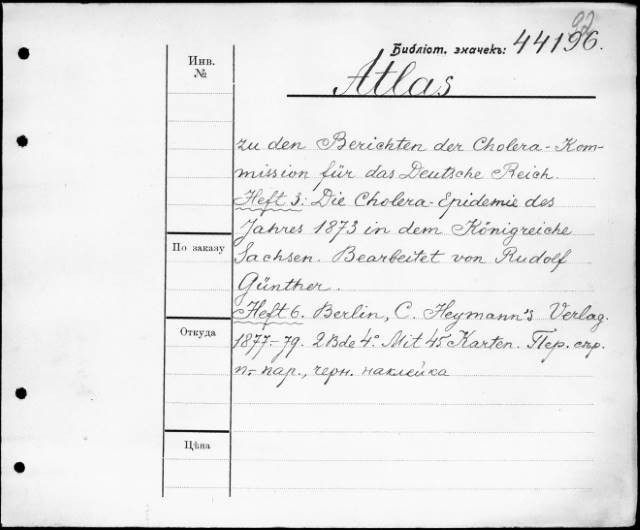 92
Библіот. значекъ: 44196.
Инв.
№
Atlas
zu den Berichten der Cholera-Kom-
mission für das Deutsche Reich.
Heft 3: Die Cholera-Epidemie des
Jahres 1873 in dem Königreiche
По заказу
Sachsen. Bearbeitet von Rudolf
Günther.
Heft 6. Berlin, C. Heymann's Verlag.
Откуда
1877-79. 2 Bde 4°. Mit 45 Karten. Пер. сѣр.
п.- пар., черн. наклейка
Цѣна